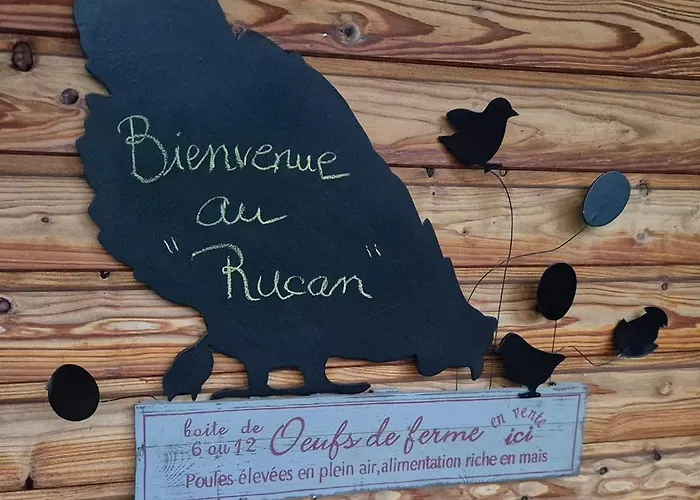 Bienvenue
au
"Rucan"
boite de
6 ou 12
Oeufs de ferme
en vente
ici
Poules élevées en plein air, alimentation riche en mais